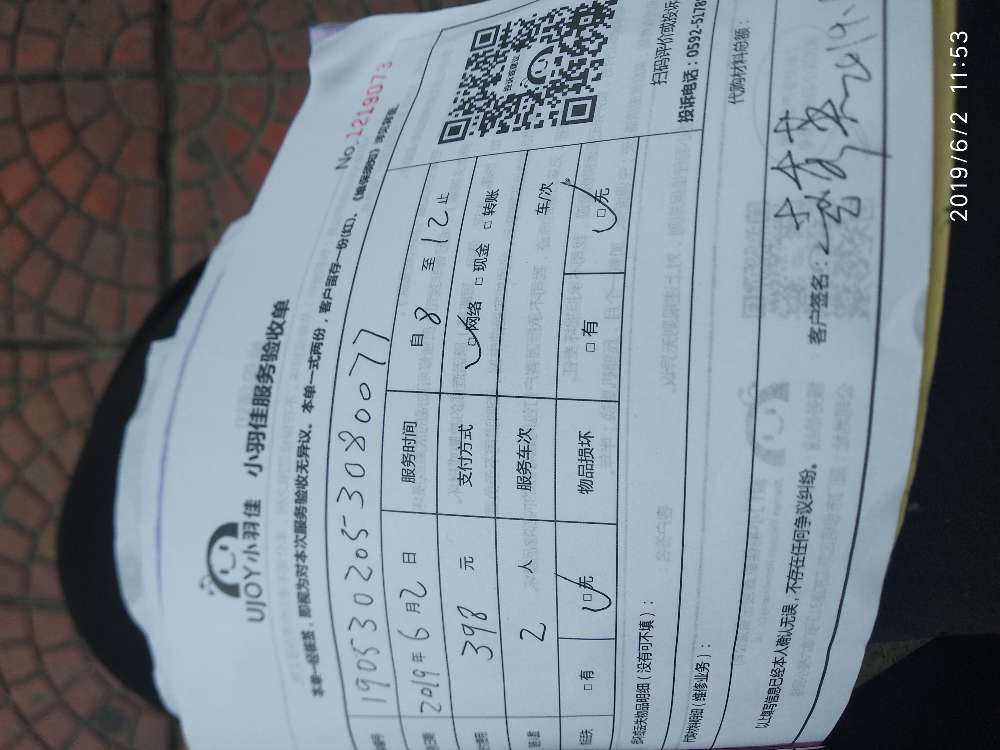 No.1219073
UJOY小羽佳 小羽佳服务验收单
本单一经核签，即视为对本次服务验收无异议。本单一式两份，客户留存一份(红)。
19053020553080077
2019年6月2日 服务时间 自8至12止
398元 支付方式 □网络 □现金 □转账
2人 服务车次 车/次
□有 □无 物品损坏 □有 □无
投诉或建议
扫码评价或投诉
投诉电话：0592-5178
遗失物品明细（没有可不填）：
代购材料明细（维修业务）：
代购材料总额：
以上填写信息已经本人确认无误，不存在任何争议纠纷。
客户签名：
2019/6/2 11:53